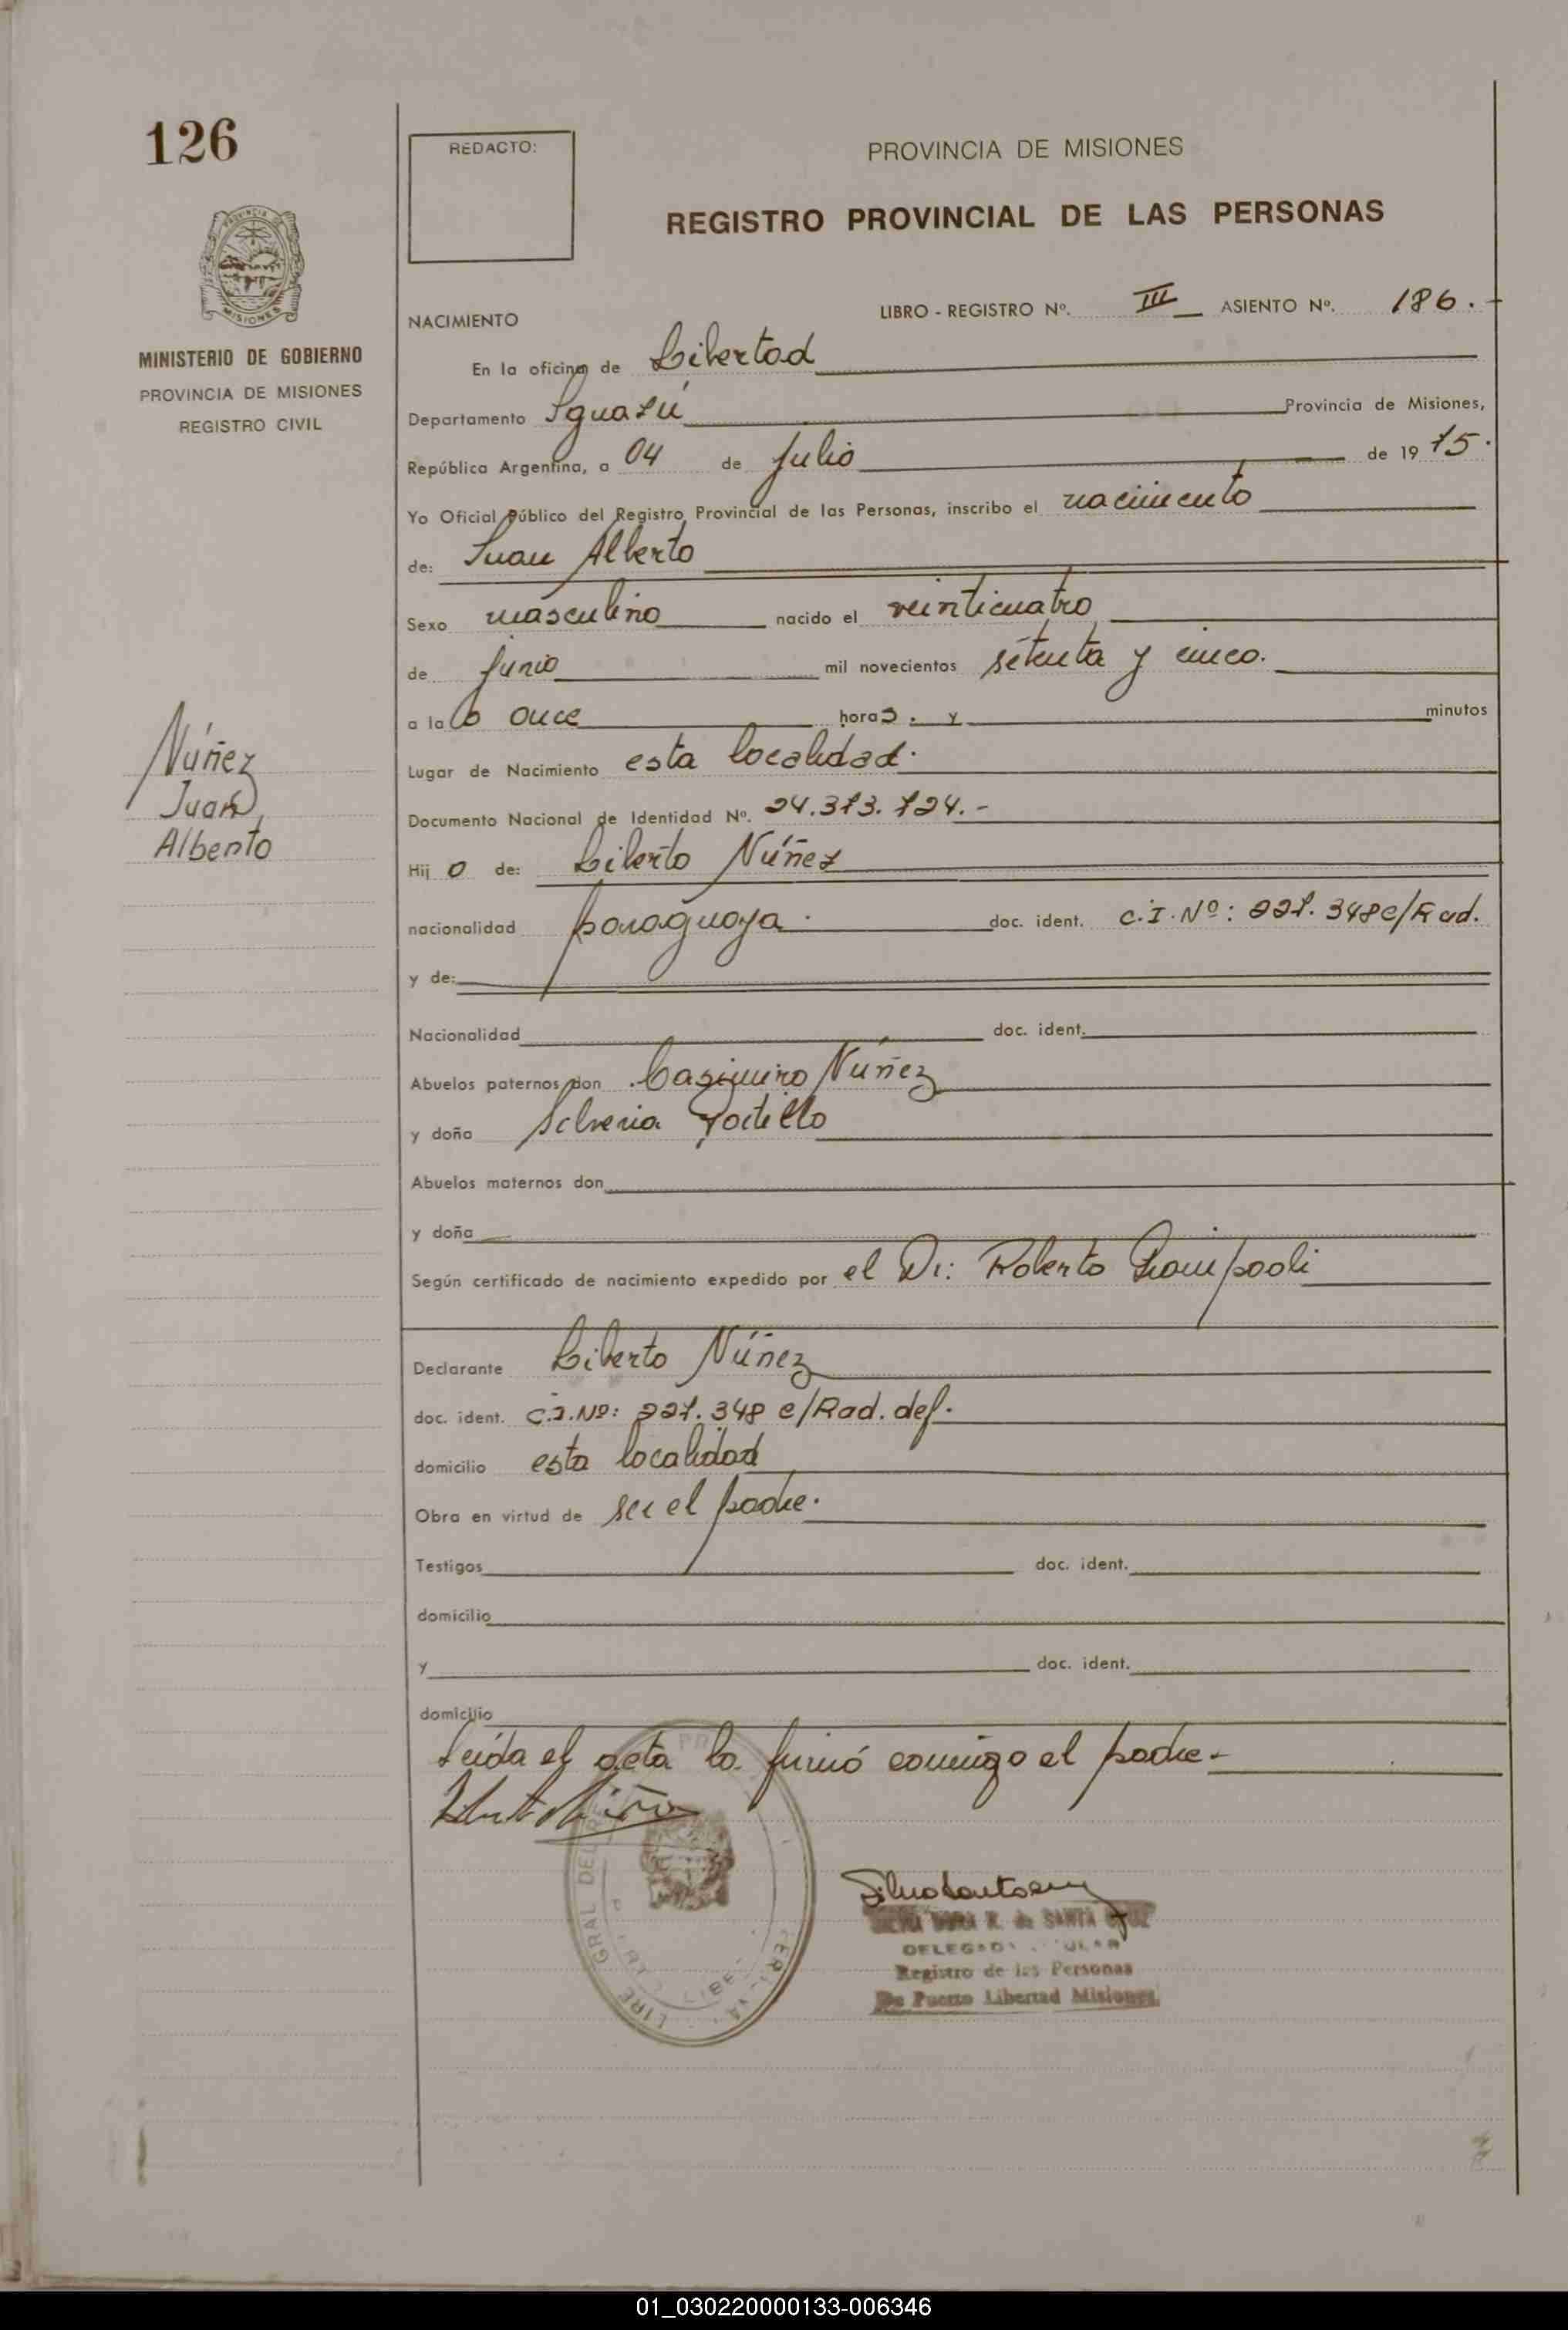 126
REDACTO:
PROVINCIA DE MISIONES
REGISTRO PROVINCIAL DE LAS PERSONAS
MISIONES
MINISTERIO DE GOBIERNO
PROVINCIA DE MISIONES
REGISTRO CIVIL
NACIMIENTO
LIBRO - REGISTRO Nº. III ASIENTO Nº. 186.
En la oficina de Libertad
Departamento Iguazú Provincia de Misiones,
República Argentina, a 04 de Julio de 19 75.
Yo Oficial Público del Registro Provincial de las Personas, inscribo el nacimiento
de: Juan Alberto
Sexo masculino nacido el veinticuatro
de junio mil novecientos setenta y cinco.
a las once horas. y minutos
Núñez
Juan
Alberto
Lugar de Nacimiento esta localidad.
Documento Nacional de Identidad Nº. 24.373.724.-
Hij o de: Liberto Núñez
nacionalidad paraguaya. doc. ident. C.I. Nº: 227.348 c/Rad.
y de:
Nacionalidad doc. ident.
Abuelos paternos don Casimiro Núñez
y doña Silveria
Abuelos maternos don
y doña
Según certificado de nacimiento expedido por el Dr: Roberto
Declarante Liberto Núñez
doc. ident. C.I. Nº: 227.348 c/Rad. def.
domicilio esta localidad
Obra en virtud de ser el padre.
Testigos doc. ident.
domicilio
y doc. ident.
domicilio
Leída el acta la firmó conmigo el padre.-
DORA R. de SANTA CRUZ
Registro de las Personas
De Puerto Libertad Misiones
01_030220000133-006346